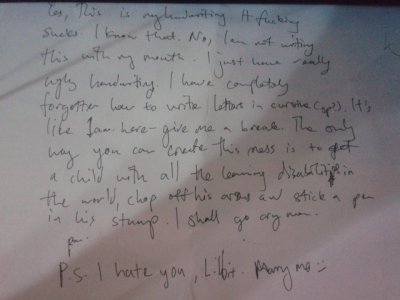 Yes, This is my handwriting It fucking
sucks. I know that. No, I am not writing
this with my mouth. I just have really
ugly handwriting. I have completely
forgotten how to write letters in cursive (caps). It's
like I am here - give me a break. The only
way you can create this mess is to get
a child with all the learning disabilities in
the world, chop off his arms and stick a pen
in his stump. I shall go cry now.
P.S. I hate you, Lilbit. Marry me :)